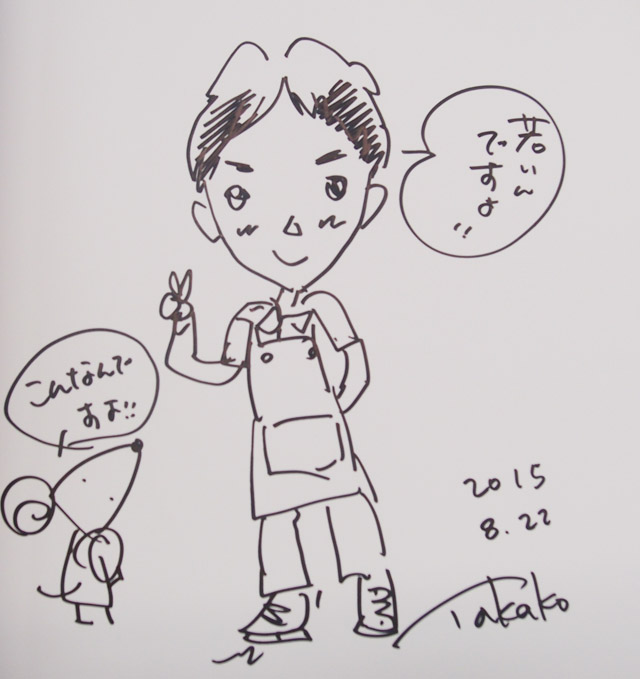 若いん
ですよ!!
こんなんで
すよ!!
2015
8.22
Takako